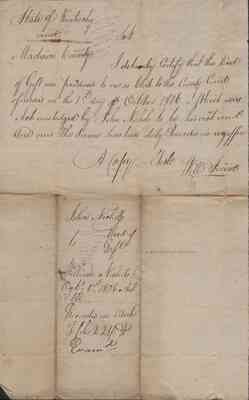 State of Kentucky
Madison County
I do hereby Certify that this Deed
of Gift was produced to me as Clerk to the County Court
aforesaid on the 1st day of October 1816 & Which were
Acknowledged by John Nichols to be his act and
deed and the Same has been duly Recorded in my office
A Copy Teste
John Nichols
To Deed of
Gift
William Nichols
Octr 1st 1816 Ack
Recorded in Book
Examd